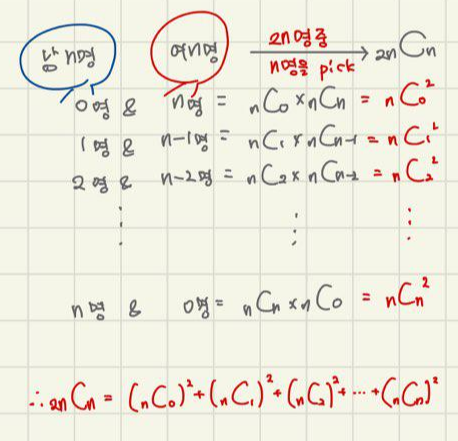 남n명 여n명 2n명중 n명을 pick → ₂ₙCₙ
0명 & n명 = ₙC₀ × ₙCₙ = ₙC₀²
1명 & n-1명 = ₙC₁ × ₙCₙ₋₁ = ₙC₁²
2명 & n-2명 = ₙC₂ × ₙCₙ₋₂ = ₙC₂²
⋮ ⋮ ⋮
n명 & 0명 = ₙCₙ × ₙC₀ = ₙCₙ²
∴ ₂ₙCₙ = (ₙC₀)² + (ₙC₁)² + (ₙC₂)² + ⋯ + (ₙCₙ)²